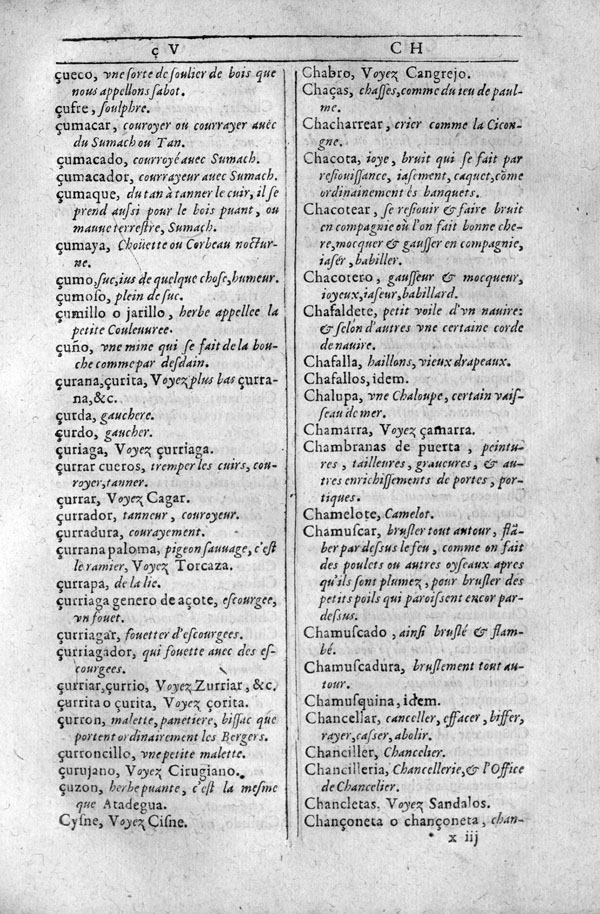 ç V
çueco, vne ſorte de ſoulier de bois que
nous appellons ſabot.
çufre, ſoulphre.
çumacar, couroyer ou courrayer auec
du Sumach ou Tan.
çumacado, courroyé auec Sumach.
çumacador, courrayeur auec Sumach.
çumaque, du tan à tanner le cuir, il ſe
prend auſsi pour le bois puant, ou
mauue terreſtre, Sumach.
çumaya, Choüette ou Corbeau noctur-
ne.
çumo, ſuc, ius de quelque choſe, humeur.
çumoſo, plein de ſuc.
çumillo o jarillo, herbe appellee la
petite Couleuuree.
çuño, vne mine qui ſe fait de la bou-
che comme par deſdain.
çurana, çurita, Voyez plus bas çurra-
na, &c.
çurda, gauchere.
çurdo, gaucher.
çuriaga, Voyez çurriaga.
çurrar cueros, tremper les cuirs, cou-
royer, tanner.
çurrar, Voyez Cagar.
çurrador, tanneur, couroyeur.
çurradura, courayement.
çurrana paloma, pigeon ſauuage, c'eſt
le ramier, Voyez Torcaza.
çurrapa, de la lie.
çurriaga genero de açote, eſcourgee,
vn fouet.
çurriagar, fouetter d'eſcourgees.
çurriagador, qui fouette auec des eſ-
courgees.
çurriar, çurrio, Voyez Zurriar, &c.
çurrita o çurita, Voyez çorita.
çurron, malette, panetiere, biſſac que
portent ordinairement les Bergers.
çurroncillo, vne petite malette.
çurujano, Voyez Cirugiano.
çuzon, herbe puante, c'eſt la meſme
que Atadegua.
Cyſne, Voyez Ciſne.
C H
Chabro, Voyez Cangrejo.
Chaças, chaſſes, comme du ieu de paul-
me.
Chacharrear, crier comme la Cicon-
gne.
Chacota, ioye, bruit qui ſe fait par
reſiouiſſance, iaſement, caquet, cõme
ordinairement és banquets.
Chacotear, ſe reſiouir & faire bruit
en compagnie où l'on fait bonne che-
re, mocquer & gauſſer en compagnie,
iaſer, babiller.
Chacotero, gauſſeur & mocqueur,
ioyeux, iaſeur, babillard.
Chafaldete, petit voile d'vn nauire:
& ſelon d'autres vne certaine corde
de nauire.
Chafalla, haillons, vieux drapeaux.
Chafallos, idem.
Chalupa, vne Chaloupe, certain vaiſ-
ſeau de mer.
Chamarra, Voyez çamarra.
Chambranas de puerta, peintu-
res, tailleures, graueures, & au-
tres enrichiſſements de portes, por-
tiques.
Chamelote, Camelot.
Chamuſcar, bruſler tout autour, flã-
ber par deſsus le feu, comme on fait
des poulets ou autres oyſeaux apres
qu'ils ſont plumez, pour bruſler des
petits poils qui paroiſſent encor par-
deſsus.
Chamuſcado, ainſi bruſlé & flam-
bé.
Chamuſcadura, bruſlement tout au-
tour.
Chamuſquina, idem.
Chancellar, canceller, effacer, biffer,
rayer, caſſer, abolir.
Chanciller, Chancelier.
Chancilleria, Chancellerie, & l'Office
de Chancelier.
Chancletas, Voyez Sandalos.
Chançoneta o chançoneta, chan-
x iij